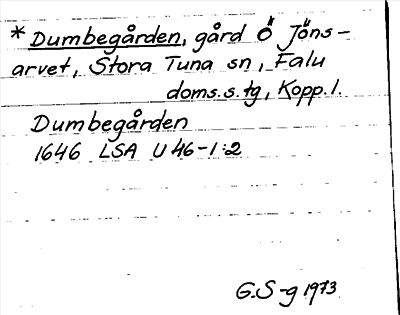 * Dumbegården, gård Ö Jöns-
arvet, Stora Tuna sn, Falu
doms.s. tg, Kopp. l.
Dumbegården
1646 LSA U 46-1:2
G.S-g 1973